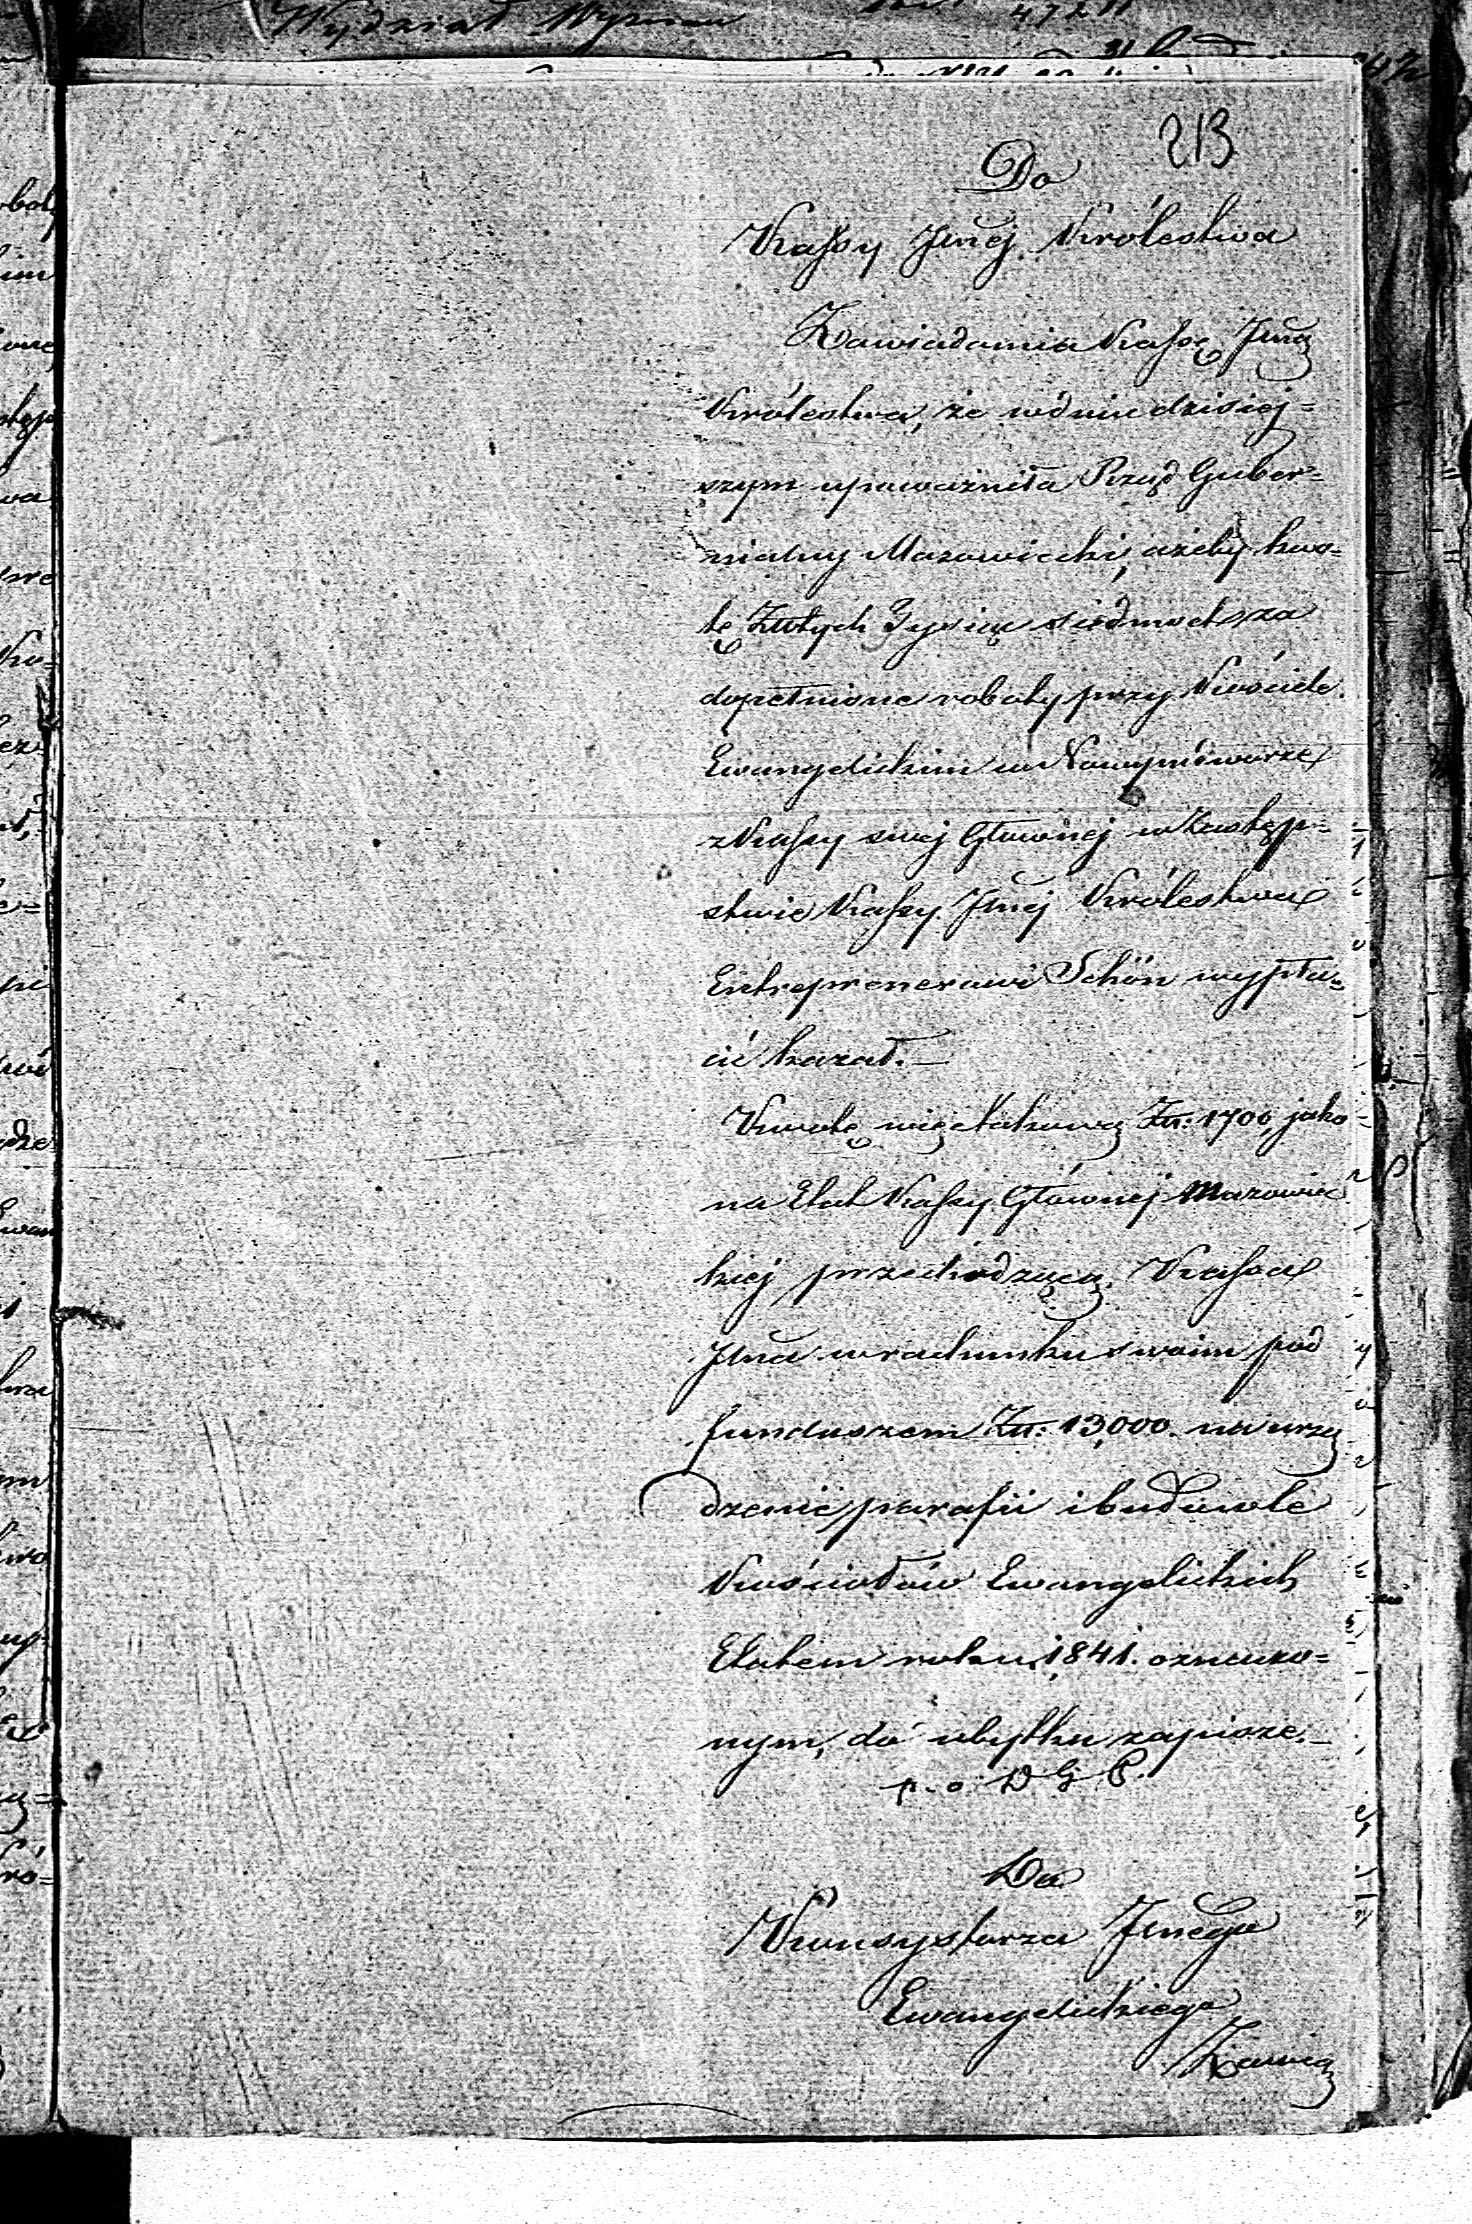 213
Do
Kassy Jnej Królestwa
Zawiadamia Kassę Jną
Królestwa, że w dniu dzisiej=
szym upoważniła Rząd Guber=
nialny Mazowiecki, ażeby kwo=
tę Złotych Tysiąc siedmset za
dopełnione roboty przy Kościele
Ewangelickim w Nowymdworze
z Kassy swej Głównej w Zastęp=
stwie Kassy Jnej Królestwa
Entreprenerowi Schön wypła=
cić kazał.—
Kwotę więc takową Złł: 1700, jako
na Etat Kassy Głównej Mazowiec
kiej przechodzącą, Kassa
Jna w rachunku swoim pod
funduszem Złł: 13,000. na urzą
dzenie parafii i budowle
Kościołów Ewangelickich
Etatem roku 1841. oznaczo=
nym, do ubytku zapisze.—
p. o. D G P.
Do
Konsystorza Jnego
Ewangelickiego
Zawia